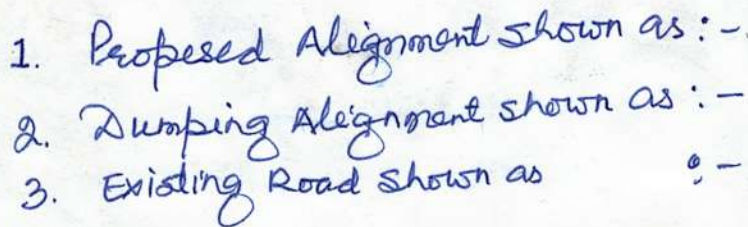 1. Proposed Alignment shown as :-
2. Dumping Alignment shown as :-
3. Existing Road shown as :-